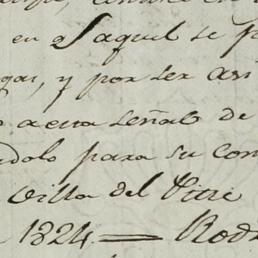 en Jaquel se
gar, y por ser asi
a esta señal de
dolo para su con
Villa del
1824 = Rod